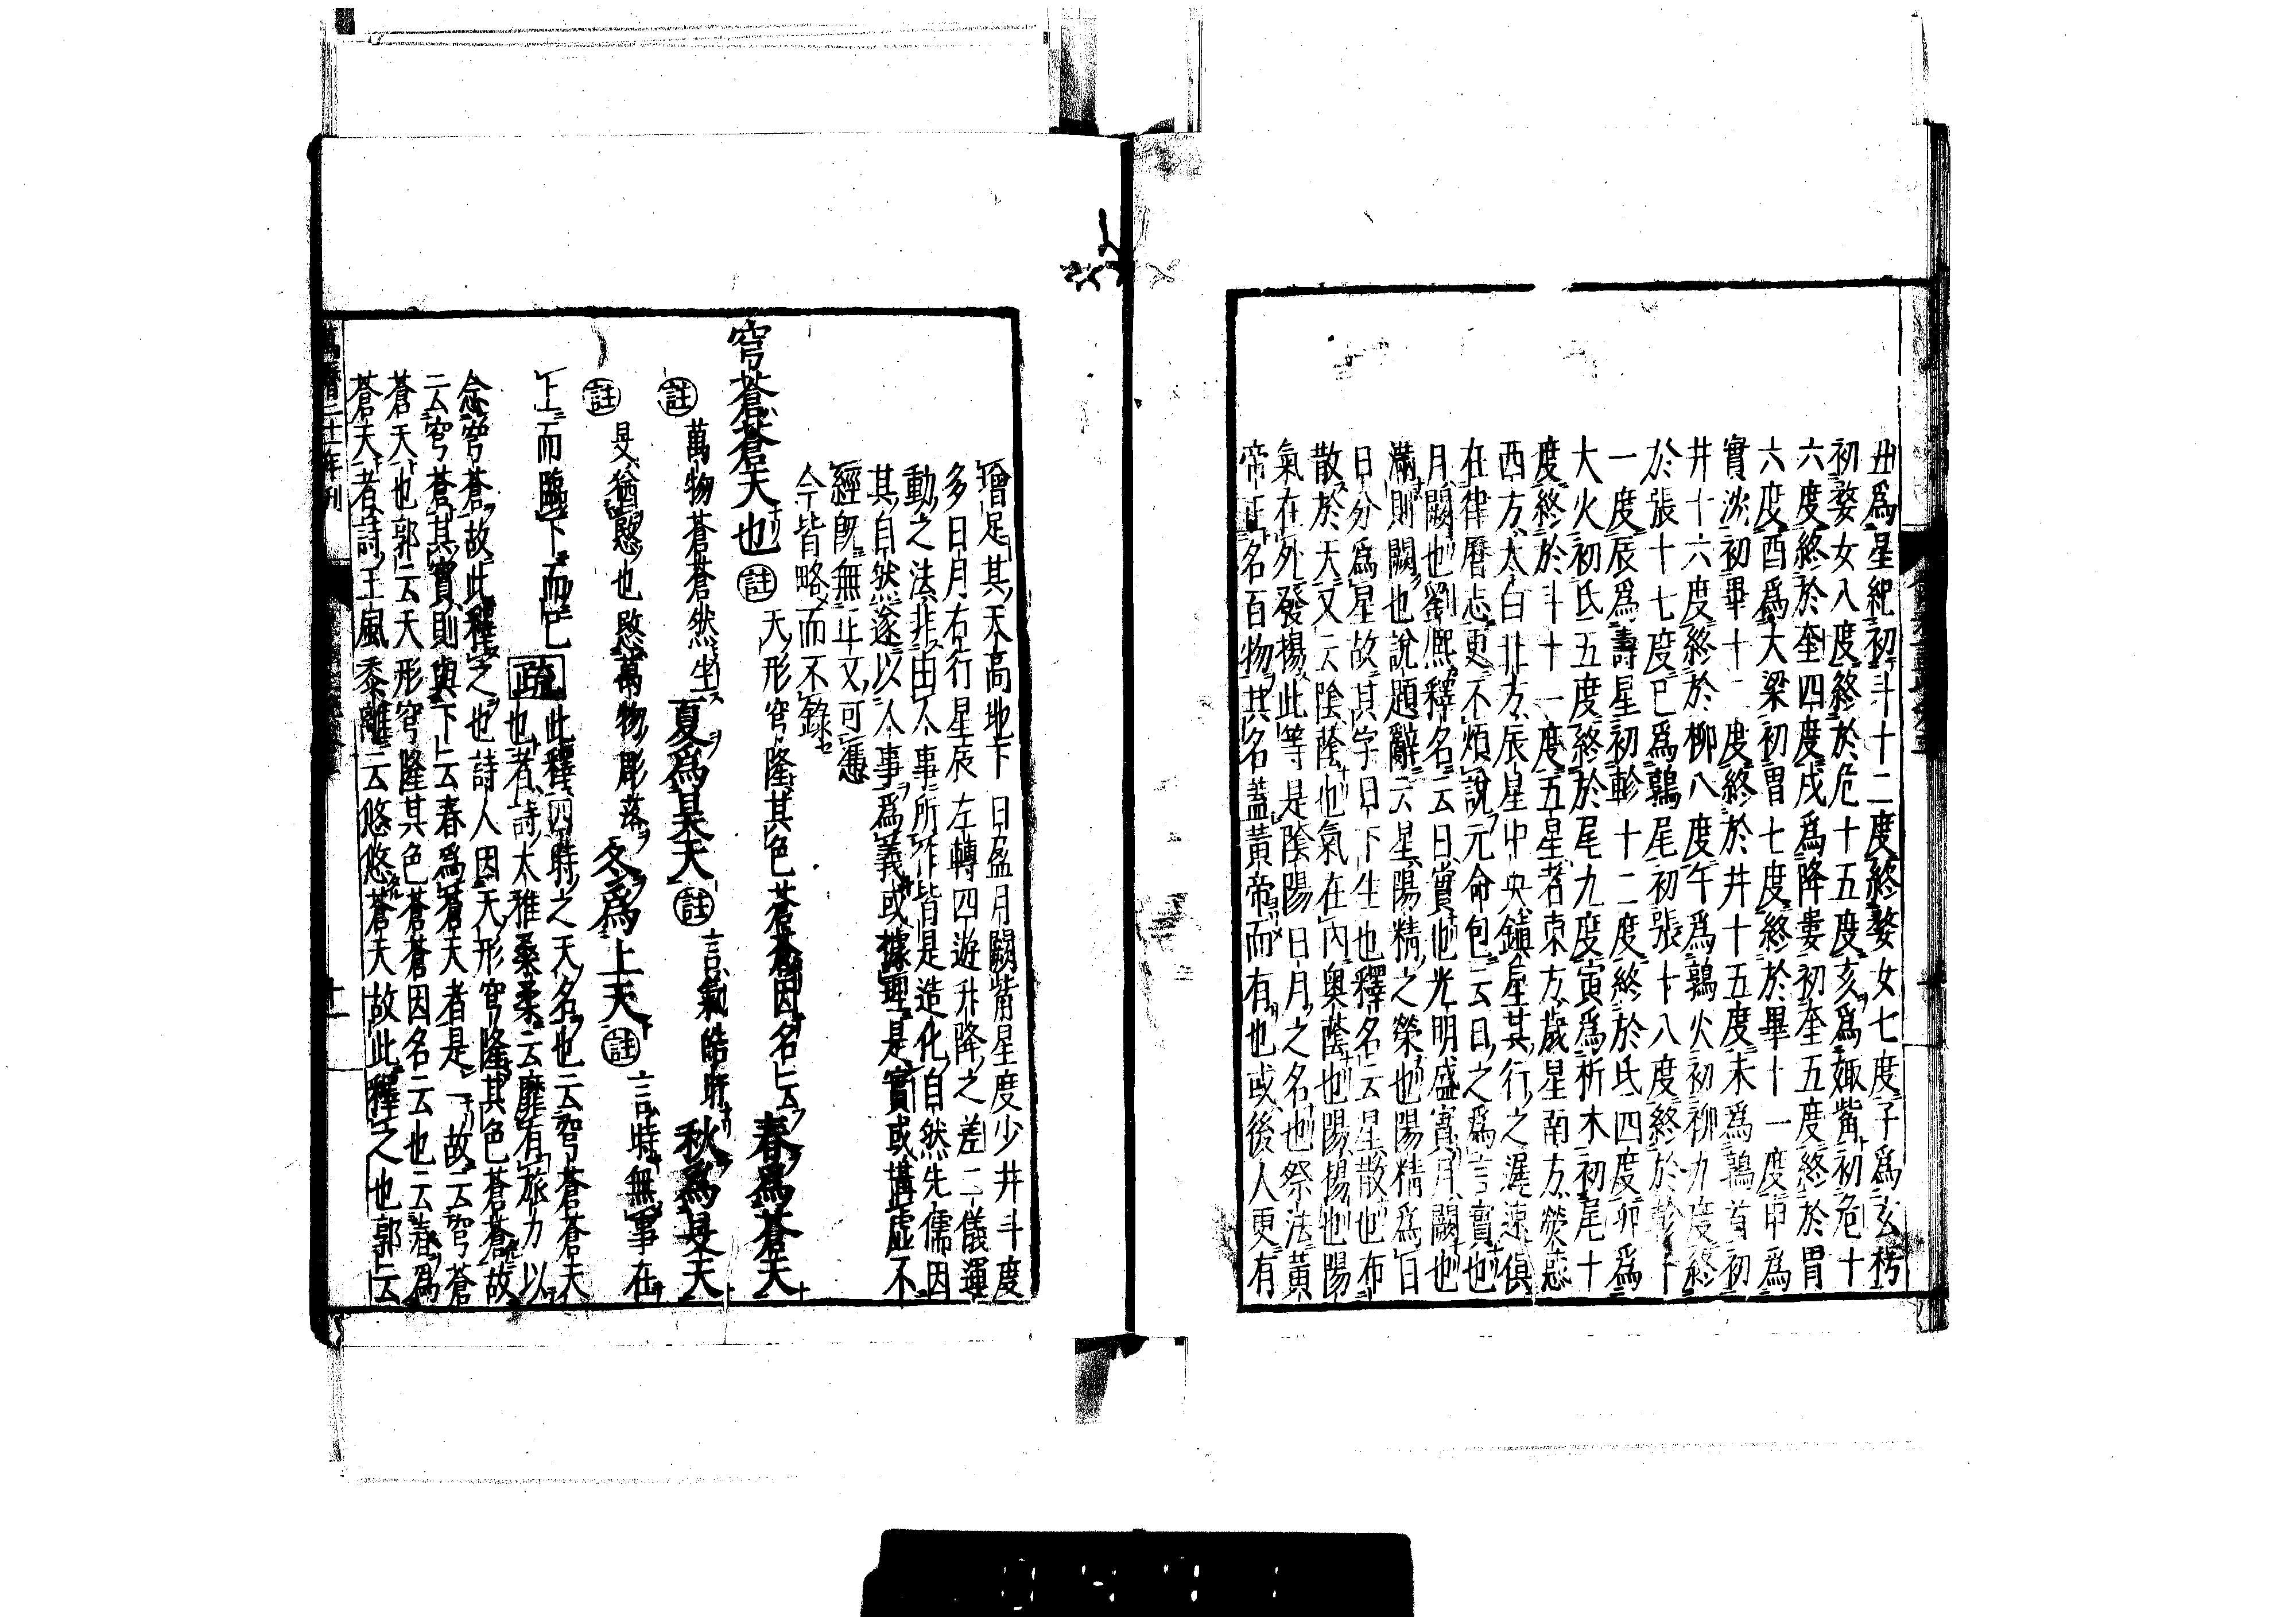 丑爲星紀初斗十二度終婺女七度子爲玄枵
初婺女八度終於危十五度亥爲娵觜初危十
六度終於奎四度戌爲降婁初奎五度終於胃
六度酉爲大梁初胃七度終於畢十一度申爲
實沈初畢十二度終於井十五度未爲鶉首初
井十六度終於柳八度午爲鶉火初柳九度終
於張十七度巳爲鶉尾初張十八度終於軫十
一度辰爲壽星初軫十二度終於氐四度卯爲
大火初氐五度終於尾九度寅爲析木初尾十
度終於斗十一度五星者東方歲星南方熒惑
西方太白北方辰星中央鎮星其行之遲速俱
在律曆志更不煩說元命包云日之爲言實也
月闕也劉熙釋名云日實也光明盛實月闕也
滿則闕也說題辭云星陽精之榮也陽精爲日
日分爲星故其字日下生也釋名云星散也布
散於天又云陰蔭也氣在內奧蔭也陽揚也陽
氣在外發揚此等是陰陽日月之名也祭法黃
帝正名百物其名蓋黃帝而有也或後人更有
增足其天高地下日盈月闕觜星度少井斗度
多日月右行星辰左轉四遊升降之差二儀運
動之法非由人事所作皆是造化自然先儒因
其自然遂以人事爲義或據理是實或搆虛不
經既無正文可憑
今皆略而不錄也
穹蒼蒼天也 註 天形穹隆其色蒼蒼因名云 春爲蒼天
註 萬物蒼蒼然生 夏爲昊天 註 言氣皓旰 秋爲旻天
註 旻猶愍也愍萬物彫落 冬爲上天 註 言時無事在
上而臨下而已 疏 此釋四時之天名也云穹蒼蒼天
也者詩大雅桑柔云靡有旅力以
念穹蒼故此釋之也詩人因天形穹隆其色蒼蒼故
云穹蒼其實則與下云春爲蒼天者是一故云穹蒼
蒼天也郭云天形穹隆其色蒼蒼因名云也云春爲
蒼天者詩王風黍離云悠悠蒼天故此釋之也郭云
萬曆二十一年刊
十一